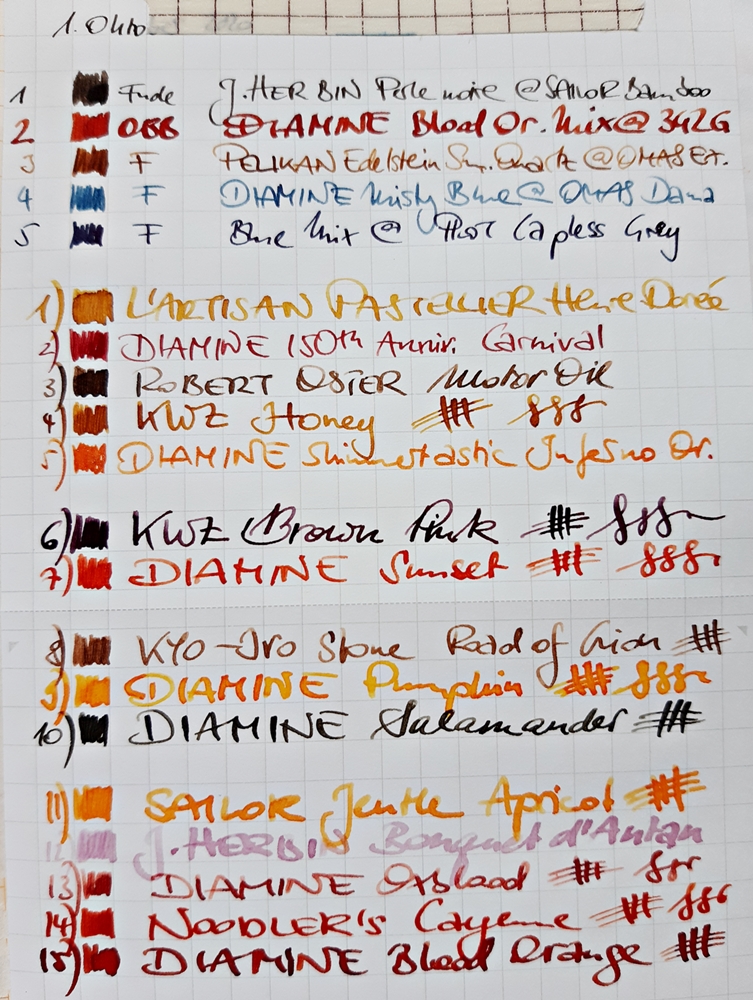 1. Okto
1 Fude J. HERBIN Perle noire @ SAILOR Bamboo
2 OBB DIAMINE Blood Or. Mix @ 342G
3 F PELIKAN Edelstein Sm. Quartz @ OMAS Ex.
4 F DIAMINE Misty Blue @ OMAS Dama
5 F Blue Mix @ Pilot Capless Grey
1) L'ARTISAN PASTELLIER Herre Dorée
2) DIAMINE 150th Anniv. Carnival
3) ROBERT OSTER Motor Oil
4) KWZ Honey
5) DIAMINE Shimmertastic Inferno Or.
6) KWZ Brown Pink
7) DIAMINE Sunset
8) KYO-Iro Stone Road of Gion
9) DIAMINE Pumpkin
10) DIAMINE Salamander
11) SAILOR Jentle Apricot
12 J. HERBIN Bouquet d'Antan
13) DIAMINE Oxblood
14) NOODLER'S Cayenne
15) DIAMINE Blood Orange